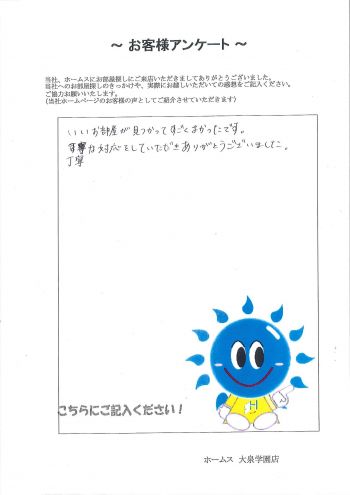 ～ お客様アンケート ～
当社、ホームスにお部屋探しにご来店いただきましてありがとうございました。
当社へのお部屋探しのきっかけや、実際にお越しいただいての感想をご記入ください。
ご協力お願いいたします。
(当社ホームページのお客様の声としてご紹介させていただきます)
いいお部屋が見つかってすごくよかったです。
な対応をしていただきありがとうございました。
丁寧
こちらにご記入ください！
ホームス 大泉学園店